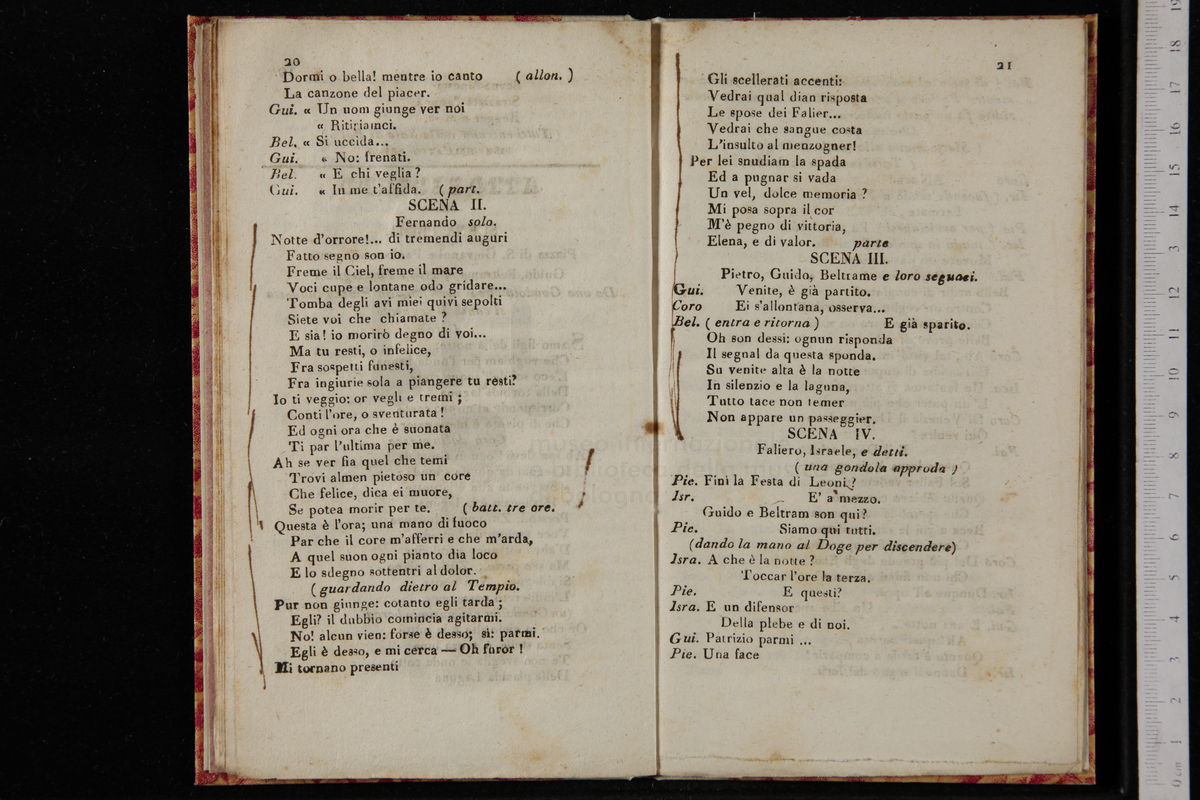 20
Dormi o bella! mentre io canto ( allon. )
La canzone del piacer.
Gui. « Un uom giunge ver noi
« Ritiriamci.
Bel. « Si uccida...
Gui. « No: frenati.
Bel. « E chi veglia ?
Gui. « In me t'affida. ( part.
SCENA II.
Fernando solo.
Notte d'orrore!... di tremendi auguri
Fatto segno son io.
Freme il Ciel, freme il mare
Voci cupe e lontane odo gridare...
Tomba degli avi miei quivi sepolti
Siete voi che chiamate ?
E sia! io morirò degno di voi...
Ma tu resti, o infelice,
Fra sospetti funesti,
Fra ingiurie sola a piangere tu resti?
Io ti veggio: or vegli e tremi ;
Conti l'ore, o sventurata !
Ed ogni ora che è suonata
Ti par l'ultima per me.
Ah se ver fia quel che temi
Trovi almen pietoso un core
Che felice, dica ei muore,
Se potea morir per te. ( batt. tre ore.
Questa è l'ora; una mano di fuoco
Par che il core m'afferri e che m'arda,
A quel suon ogni pianto dia loco
E lo sdegno sottentri al dolor.
( guardando dietro al Tempio.
Pur non giunge: cotanto egli tarda ;
Egli? il dubbio comincia agitarmi.
No! alcun vien: forse è desso; sì: parmi.
Egli è desso, e mi cerca — Oh furor !
Mi tornano presenti
21
Gli scellerati accenti:
Vedrai qual dian risposta
Le spose dei Falier...
Vedrai che sangue costa
L'insulto al menzogner!
Per lei snudiam la spada
Ed a pugnar si vada
Un vel, dolce memoria ?
Mi posa sopra il cor
M'è pegno di vittoria,
Elena, e di valor. parte
SCENA III.
Pietro, Guido, Beltrame e loro seguaci.
Gui. Venite, è già partito.
Coro Ei s'allontana, osserva...
Bel. ( entra e ritorna ) E già sparito.
Oh son dessi: ognun risponda
Il segnal da questa sponda.
Su venite alta è la notte
In silenzio e la laguna,
Tutto tace non temer
Non appare un passeggier.
SCENA IV.
Faliero, Israele, e detti.
( una gondola approda )
Pie. Finì la Festa di Leoni!
Isr. E' a mezzo.
Guido e Beltram son qui?
Pie. Siamo qui tutti.
(dando la mano al Doge per discendere)
Isra. A che è la notte ?
Toccar l'ore la terza.
Pie. E questi?
Isra. E un difensor
Della plebe e di noi.
Gui. Patrizio parmi ...
Pie. Una face